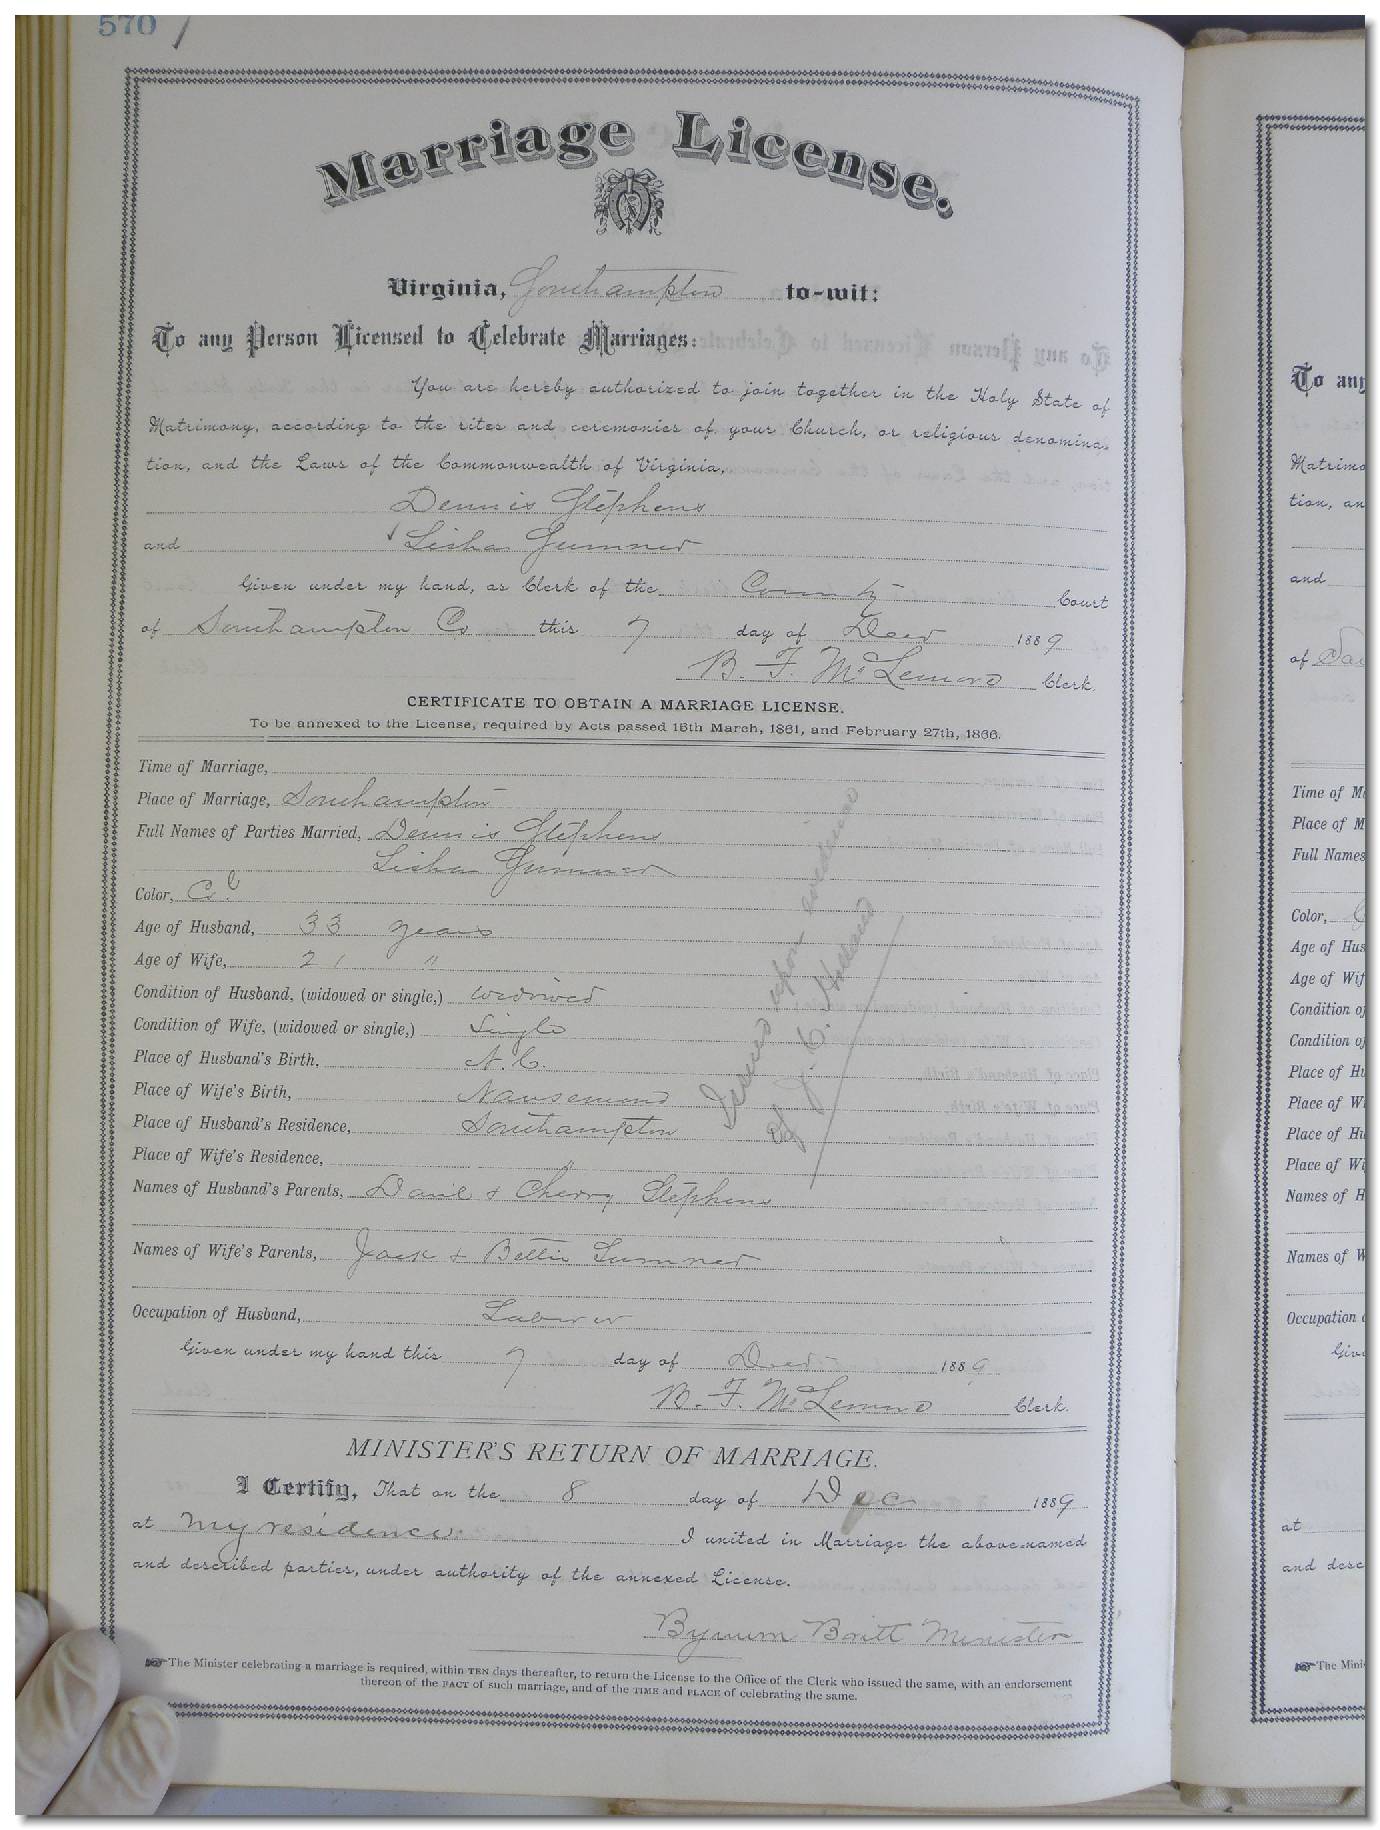 570
Marriage License.
Virginia, Southampton to-wit:
To any Person Licensed to Celebrate Marriages:
You are hereby authorized to join together in the Holy State of
Matrimony, according to the rites and ceremonies of your Church, or religious denomina-
tion, and the Laws of the Commonwealth of Virginia,
Dennis Stephens
and Lisha Sumner
Given under my hand, as Clerk of the County Court
of Southampton Co this 7 day of Decr 1889
B. F. McLemore Clerk.
CERTIFICATE TO OBTAIN A MARRIAGE LICENSE.
To be annexed to the License, required by Acts passed 16th March, 1861, and February 27th, 1866.
Time of Marriage,
Place of Marriage, Southampton
Full Names of Parties Married, Dennis Stephens
Lisha Sumner
Color, Col
Age of Husband, 33 years
Age of Wife, 21 "
Condition of Husband, (widowed or single,) widowed
Condition of Wife, (widowed or single,) Single
Place of Husband's Birth, N. C.
Place of Wife's Birth, Nansemond
Place of Husband's Residence, Southampton
Place of Wife's Residence, "
Names of Husband's Parents, & Cherry Stephens
Names of Wife's Parents, Jack & Bettie Sumner
Occupation of Husband, Laborer
Given under my hand this 7 day of Decr 1889
B. F. McLemore Clerk.
Issued upon evidence
of J. C. Holland
MINISTER'S RETURN OF MARRIAGE.
I Certify, That on the 8 day of Dec 1889
at my residence. I united in Marriage the above-named
and described parties, under authority of the annexed License.
Bynum Britt Minister
The Minister celebrating a marriage is required, within TEN days thereafter, to return the License to the Office of the Clerk who issued the same, with an endorsement
thereon of the FACT of such marriage, and of the TIME and PLACE of celebrating the same.
To any
Matrimo
tion, an
and
of
Time of M
Place of M
Full Names
Color,
Age of Hus
Age of Wif
Condition of
Condition of
Place of Hu
Place of Wi
Place of Hu
Place of Wi
Names of H
Names of W
Occupation
Give
at
and desc
The Mini